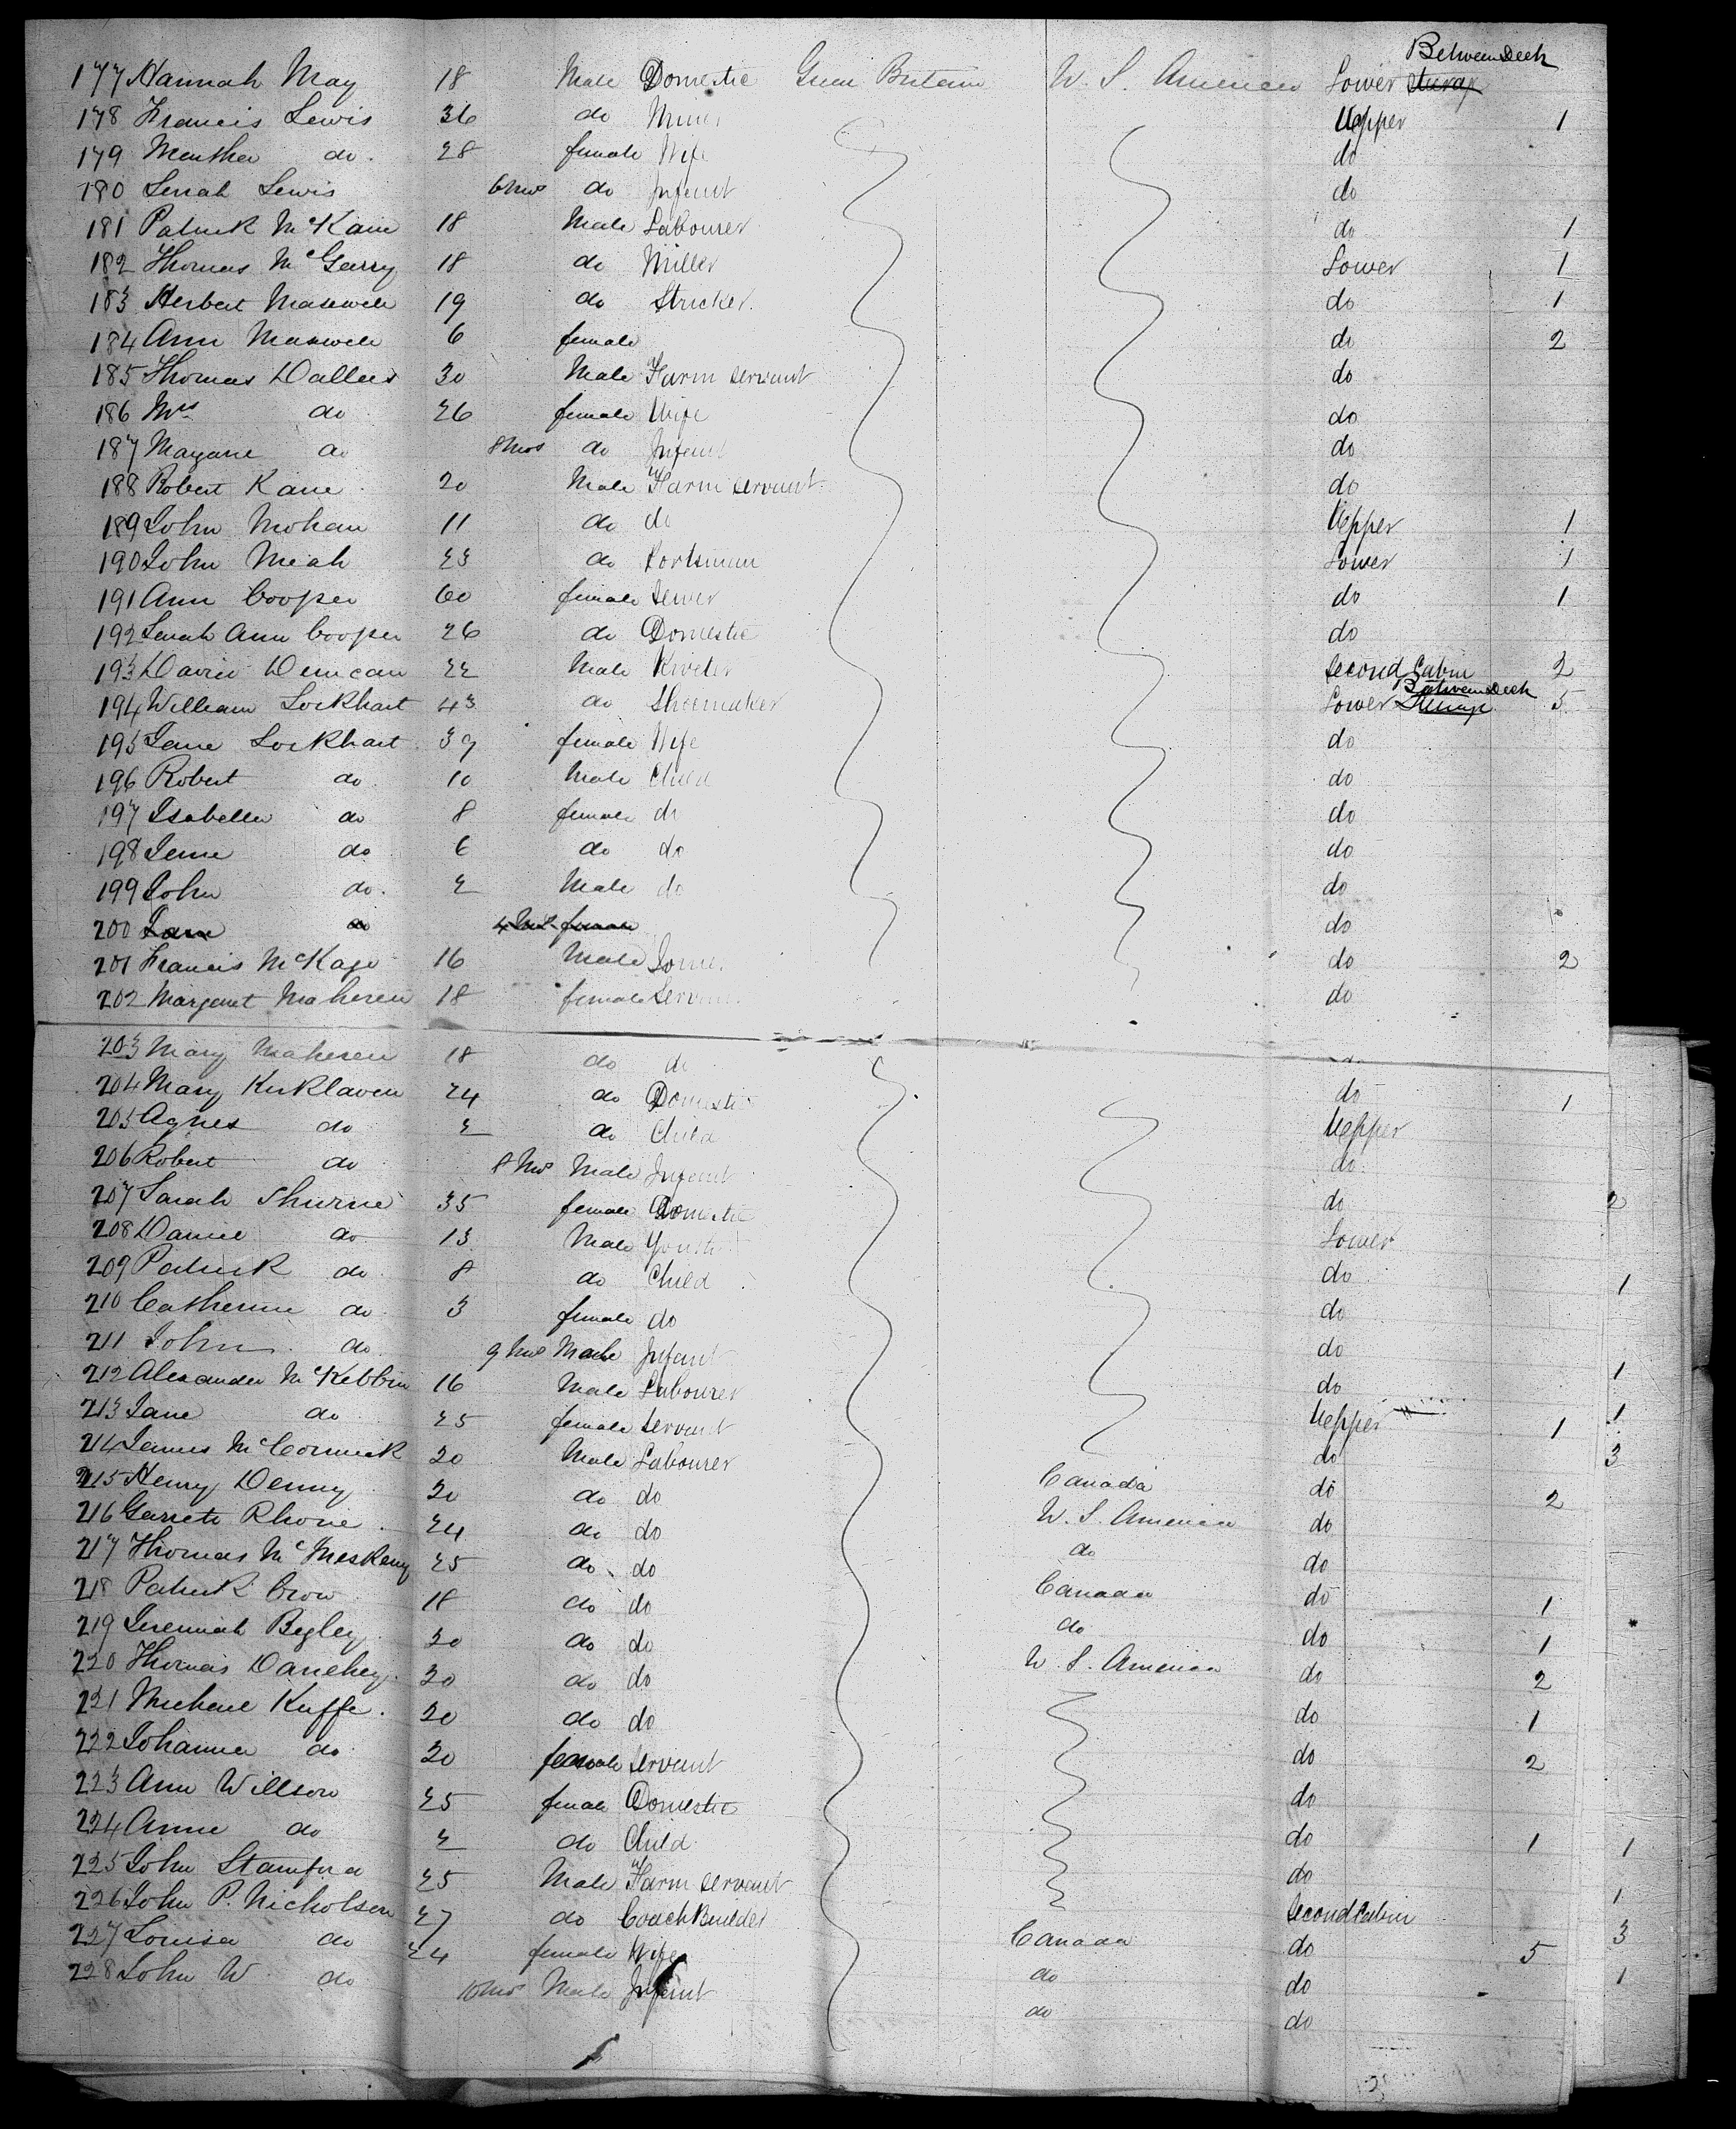 Between Deck
177 Hannah May 18 Male Domestic Great Britain U. S. America Lower Sturage
178 Francis Lewis 36 do Miner Upper 1
179 Menther do 28 female Wife do
180 Serah Lewis 6 Mos do Infant do
181 Patrick McKain 18 Male Labourer do 1
182 Thomas McGarry 18 do Miller Lower 1
183 Herbert Maxwell 19 do Stricker do 1
184 Ann Maxwell 6 female do 2
185 Thomas Dallas 30 Male Farm Servant do
186 Mrs do 26 female Wife do
187 Magane do 8 Mos do Infant do
188 Robert Kane 20 Male Farm servant do
189 John Mohan 11 do do Upper 1
190 John Meah 23 do Lower 1
191 Ann Cooper 60 female Sewer do 1
192 Sarah Ann Cooper 26 do Domestic do
193 David Duncan 22 Male Riveter Second Cabin 2
194 William Lockhart 43 do Shoemaker Lower Between Deck 5
195 Jane Lockhart 39 female Wife do
196 Robert do 10 Male Child do
197 Isabella do 8 female do do
198 Jane do 6 do do do
199 John do 2 Male do do
200 Jane do 4 Mos female do
201 Francis McKage 16 Male do 2
202 Margaret Maheren 18 female Servant do
203 Mary Maheren 18 do do do
204 Mary Kirklaven 24 do Domestic do 1
205 Agnes do 2 do Child Upper
206 Robert do 8 Mos Male Infant do
207 Sarah Shurne 35 female Domestic do 2
208 Daniel do 13 Male Youth Lower
209 Patrick do 8 do Child do 1
210 Catherine do 3 female do do
211 John do 9 Mos Male Infant do
212 Alexander McKebbin 16 Male Labourer do 1
213 Jane do 25 female Servant Upper 1 1
214 James McCormick 20 Male Labourer do 3
215 Henry Denny 20 do do Canada do 2
216 Garrett Rhone 24 do do U. S. America do
217 Thomas McMeskeny 25 do do do do
218 Patrick Crow 18 do do Canada do 1
219 Jeremiah Begley 20 do do do do 1
220 Thomas Danehey 20 do do U. S. America do 2
221 Micheal Kuffe 20 do do do 1
222 Johanna do 20 female Servant do 2
223 Ann Willson 25 female Domestic do
224 Anne do 2 do Child do 1 1
225 John Stamford 25 Male Farm servant do
226 John P. Nicholson 27 do Coach Builder Second Cabin 1
227 Louisa do 24 female Wife Canada do 5 3
228 John W do 10 Mos Male Infant do do 1
do do